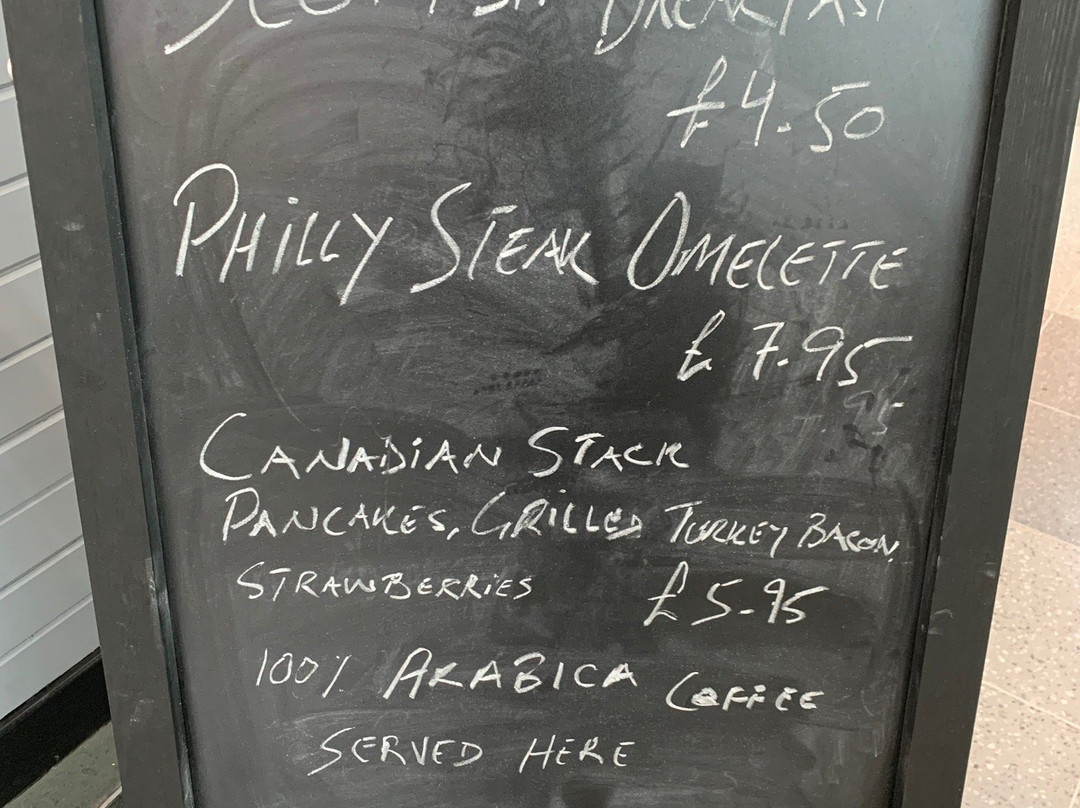 SCOTTISH BREAKFAST
£4.50
PHILLY STEAK OMELETTE
£7.95
CANADIAN STACK
PANCAKES, GRILLED TURKEY BACON,
STRAWBERRIES £5.95
100% ARABICA COFFEE
SERVED HERE